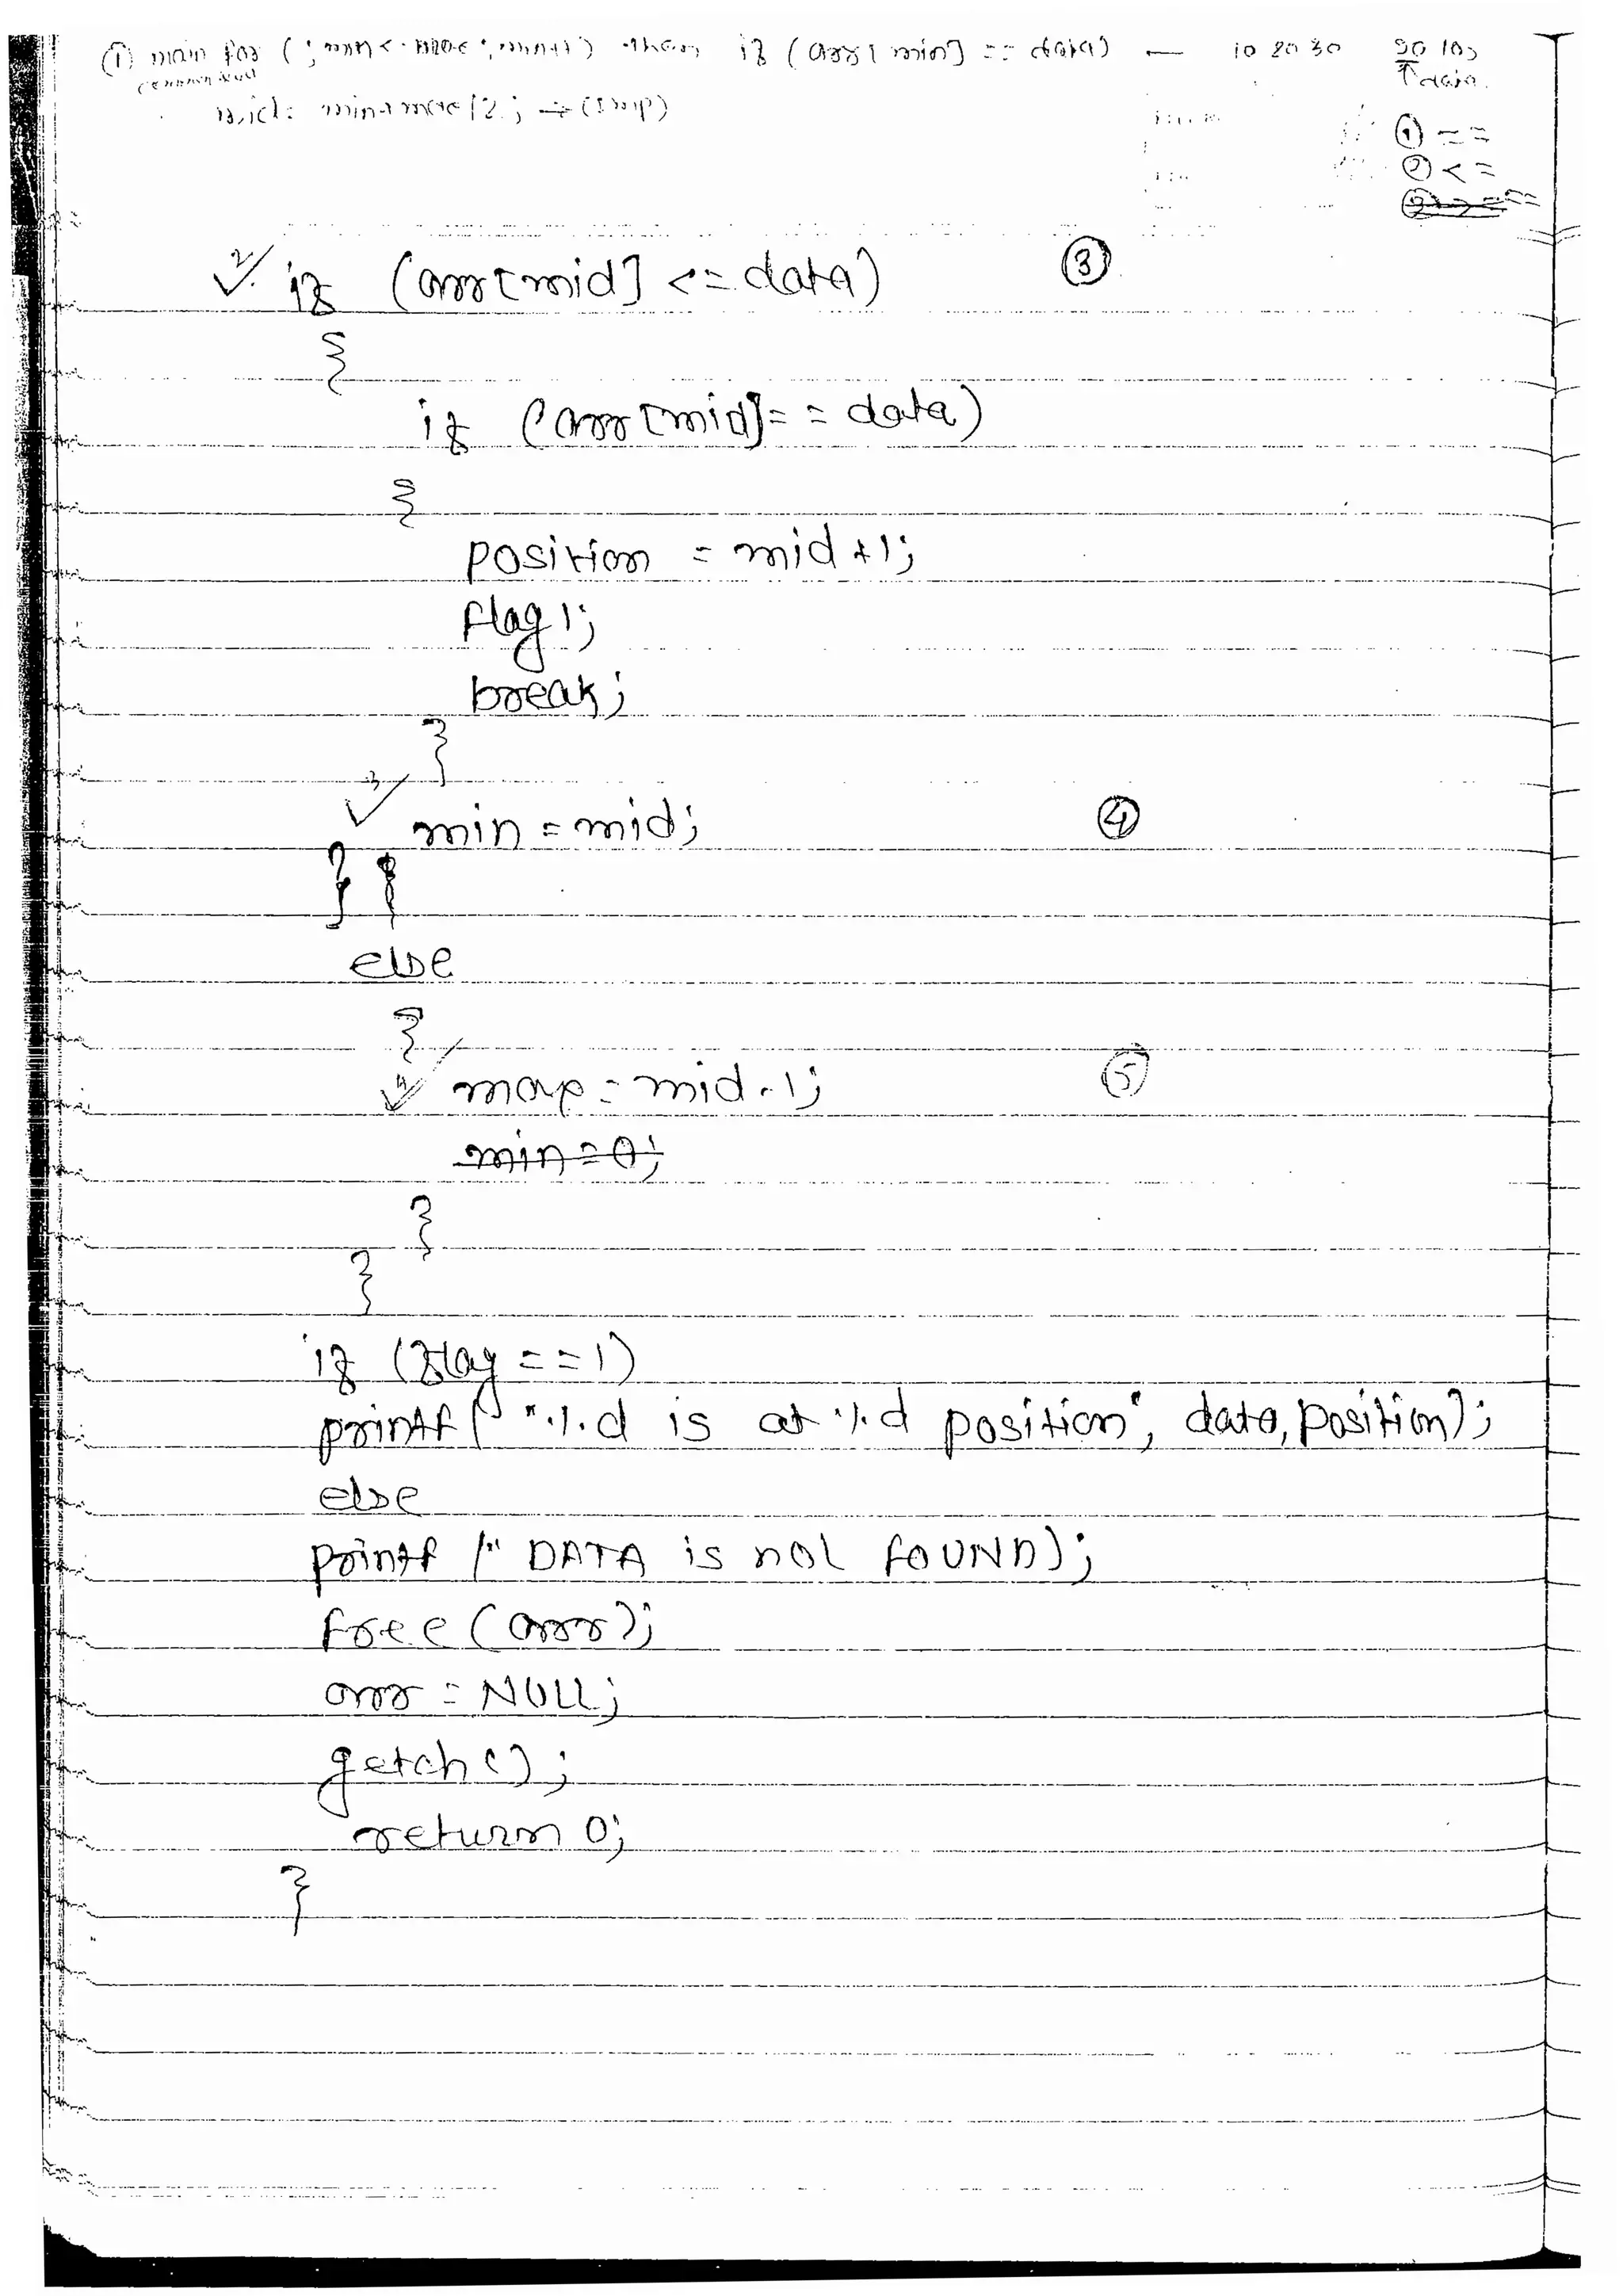 ① main for ( ; min<=max ; min++) then if (arr[min] == data) — 10 20 30 90 100
↑data.
mid= min+max/2; → (Imp)
① ==
② <=
2. if (arr[mid] <= data) ③
{
if (arr[mid]= = data)
{
position = mid +1;
flag 1;
break;
}
3 min = mid; ④
}
else
{
4 max = mid-1; ⑤
min=0;
}
}
if (flag ==1)
printf(" %d is at %d position", data, position);
else
printf (" DATA is not FOUND);
free (arr);
arr = NULL;
getch();
return 0;
}